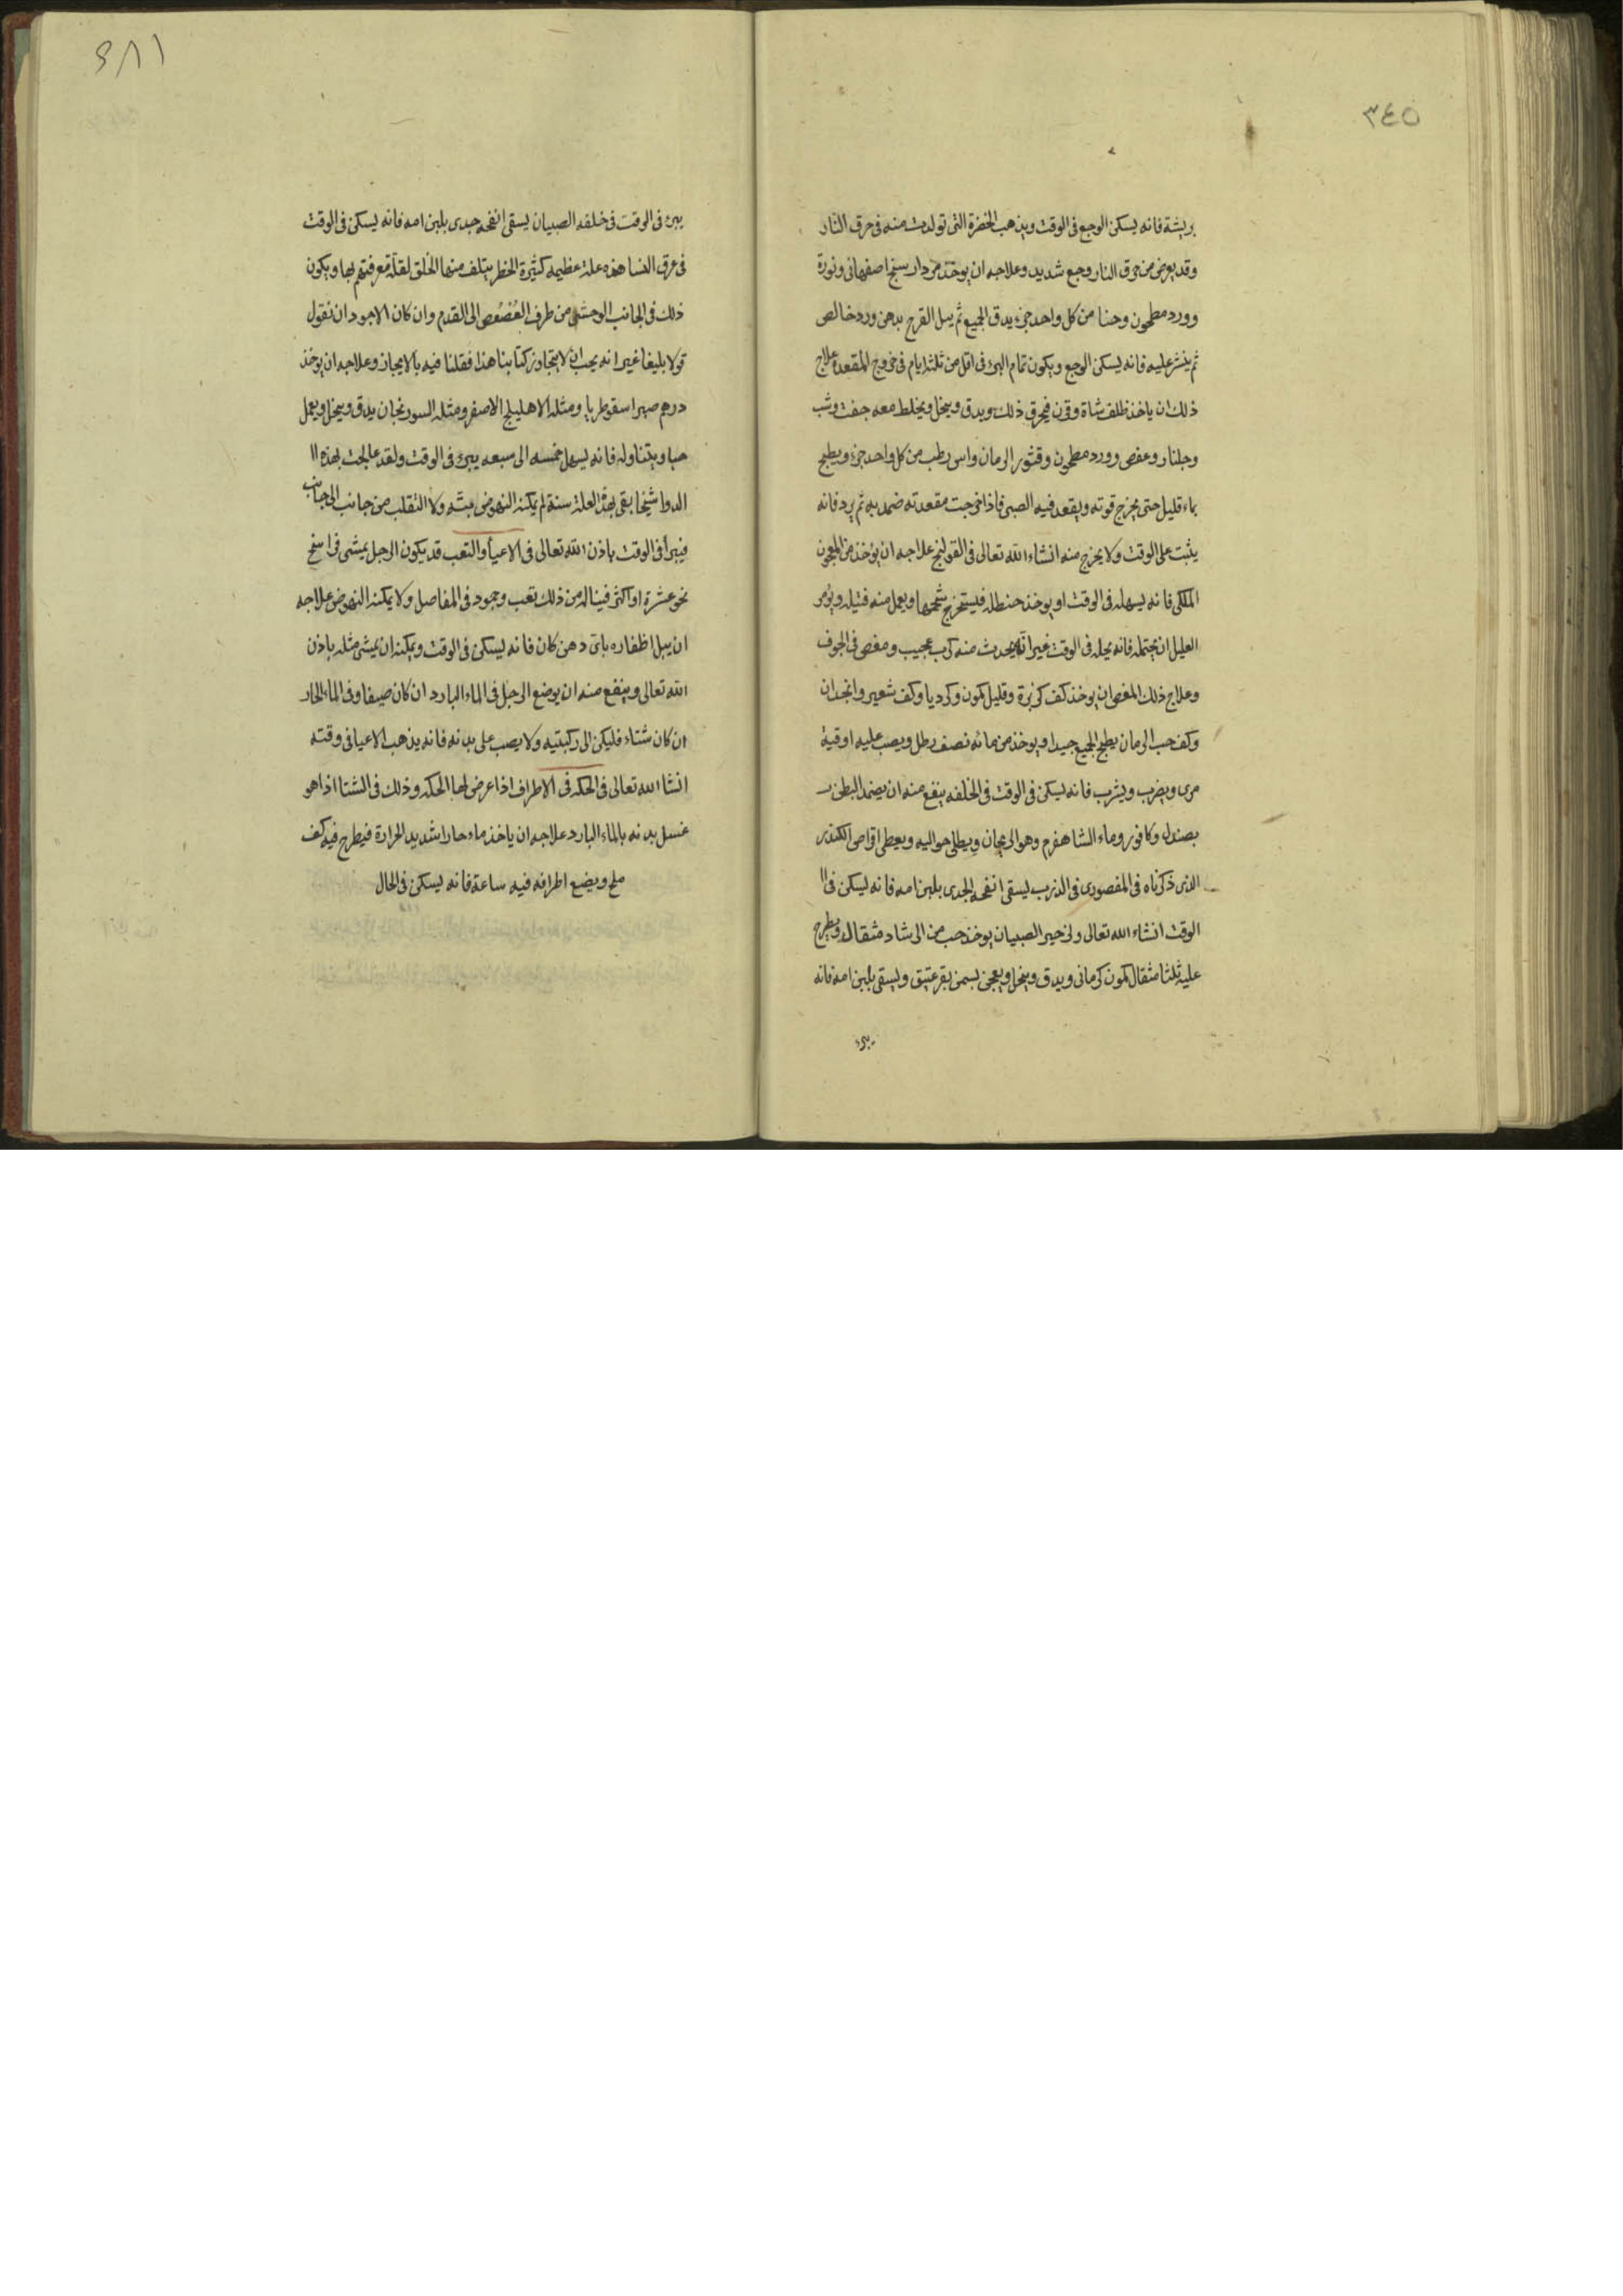 ٣٤٥
بريشة فانه يسكن الوجع فى الوقت ويذهب الخضرة التى تولدت منه فى حرق النار
وقد يعرض من حرق النار وجع شديد وعلاجه ان يوخذ مردارسنج اصفهانى ونورة
وورد مطحون وحنا من كل واحد جزء يدق الجميع ثم يبل القرح بدهن ورد خالص
ثم ينثر عليه فانه يسكن الوجع ويكون تمام البرء فى اقل من ثلثة ايام فى خروج المقعدة علاج
ذلك ان ياخذ ظلف شاة وقرن فيحرق ذلك ويدق وينخل ويخلط معه جفت وشب
وجلنار وعفص وورد مطحون وقشور الرمان واس رطب من كل واحد جزء ويطبخ
بماء قليل حتى يخرج قوته ويقعد فيه الصبى فاذا خرجت مقعدته ضمد به ثم يرد فانه
يثبت على الوقت ولا يخرج منه انشاء الله تعالى فى القولنج علاجه ان يؤخذ من المعجون
الملكى فانه يسهله فى الوقت او يوخذ حنظله فيستخرج شحمها ويعمل منه فتيله ويؤمر
العليل ان يحتمله فانه يحله فى الوقت غير انه يحدث منه كرب عجيب ومغص فى الجوف
وعلاج ذلك المغص ان يوخذ كف كزبرة وقليل كمون وكرديا وكف شعير وانجدان
وكف حب الرمان يطبخ الجميع جيدا ويوخذ من مائه نصف رطل ويصب عليه اوقية
مرى ويضرب ويشرب فانه يسكن فى الوقت فى الخلفه ينفع منه ان يضمد البطن
بصندل وكافور وماء الشاهفرم وهو الريحان ويطلى حواليه ويعطى اقراص الكندر
الذى ذكرناه فى المنصورى فى الذرب ليسقى انفحه الجدى بلبن امه فانه ليسكن فى ال
الوقت انشاء الله تعالى ولزحير الصبيان يوخذ حب من الرشاد مثقال ويطرح
عليه ثلثا مثقال كمون كرمانى ويدق وينخل ويعجن بسمن بقر عتيق ويسقى بلبن امه فانه
يبرئ
يبرئ فى الوقت فى خلفه الصبيان يسقى انفحه جدى بلبن امه فانه يسكن فى الوقت
فى عرق النسا هذه علة عظيمه كثيرة الخطر يتلف منها الخلق لقلة معرفتهم بها ويكون
ذلك فى الجانب الوحشى من طرف العُصْعُص الى القدم وان كان الاجود ان نقول
قولا بليغا غير انه يجب ان لا يتجاوز كتابنا هذا فقلنا فيه بالايجاز وعلاجه ان يوخذ
درهم صبر اسقوطريا ومثله الاهليلج الاصفر ومثله السورنجان يدق وينخل ويعمل
حبا ويتناوله فانه يسهل خمسه الى سبعه يبرئ فى الوقت ولقد عالجت بهذه ال
الدوا شيخا بقى بهذة العلة سنة لم يمكنه النهوض بتة ولا التقلب من جانب الى جانب
فيبرأ فى الوقت باذن الله تعالى فى الاعيأ والتعب قد يكون الرجل يمشى فراسخ
نحو عشرة او اكثر فيناله من ذلك تعب وجمود فى المفاصل ولا يمكنه النهوض علاجه
ان يبل اظفاره باى دهن كان فانه ليسكن فى الوقت ويمكنه ان يمشى مثله باذن
الله تعالى وينفع منه ان يوضع الرجل فى الماء البارد ان كان صيفا وفى الماء الحار
ان كان شتاء فليكن الى ركبتيه ولا يصب على بدنه فانه يذهب الاعيا فى وقته
انشا الله تعالى فى الحكه فى الاطراف اذا عرض لها الحكه وذلك فى الشتا اذا هو
غسل بدنه بالماء البارد علاجه ان ياخذ ماء حارا شديد الحرارة فيطرح فيه كف
ملح ويضع اطرافه فيه ساعة فانه ليسكن فى الحال